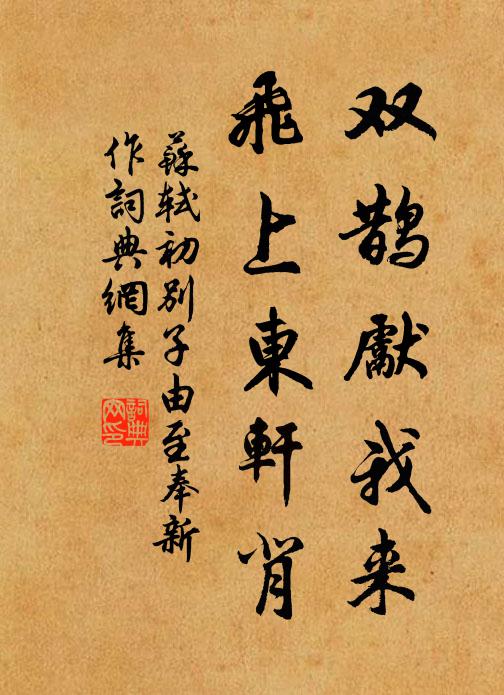 双鹊獻我来
飛上東軒背
蘇轼初别子由至奉新
作詞典網集
詞典
网印